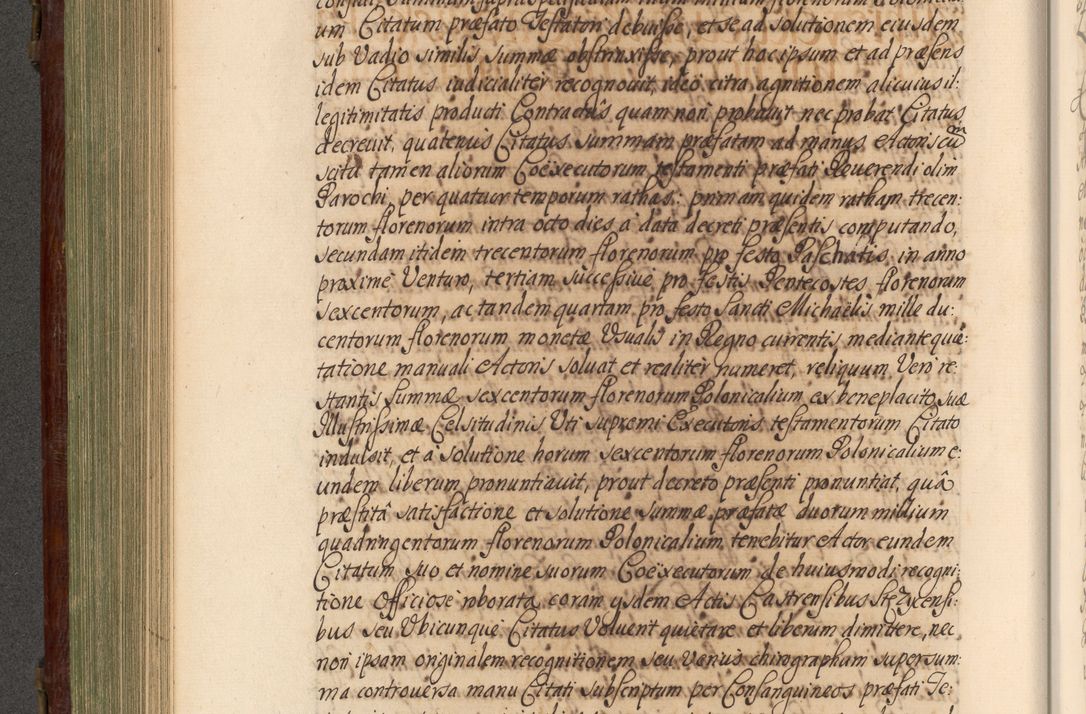 um Citatum præfato Testatori debuisse, et se ad solutionem eiusdem
sub Vadio similis summæ obstrinxisse, prout hoc ipsum et ad præsens
idem Citatus iudicialiter recognovit, ideo citra agnitionem alicuius il:
legitimitatis producti Contractus quam non probavit nec probat Citatus
decrevit, quatenus Citatus summam præfatam ad manus Actoris cum
scitu tamen aliorum Coëxecutorum testamenti præfati Reverendi olim
Parochi, per quatuor temporum rathas: primam quidem ratham trecen:
torum florenorum intra octo dies à data decreti præsentis computando,
secundam itidem trecentorum florenorum pro festo Paschatis, in anno
proxime Venturo, tertiam successivè pro festis Pentecostes florenorum
sexcentorum, ac tandem quartam pro festo Sancti Michaëlis mille du:
centorum florenorum monetæ Usualis in Regno currentis mediante quie:
tatione manuali Actoris solvat et realiter numeret, reliquum Vero re:
stantis summæ sexcentorum florenorum Polonicalium, ex beneplacito suæ
Illustrissimæ Celsitudinis Uti supremi Executoris testamentorum Citato
indulsit, et à solutione horum sexcentorum florenorum Polonicalium e:
undem liberum pronuntiavit, prout decreto præsenti pronuntiat, quâ
præstitâ satisfactione et solutione summæ præfatæ duorum millium
quadringentorum florenorum Polonicalium tenebitur Actor eundem
Citatum suo et nomine suorum Coëxecutorum de huiusmodi recogni:
tione Officiose roborata, coram ijsdem Actis Castrensibus Stęzycensi:
bus seu Ubicunque Citatus Voluerit quietare et liberum dimittere, nec
non ipsam originalem recognitionem seu Verius chirographam supersum:
ma controversa manu Citati subscriptum per Consanguineos præfati Te: